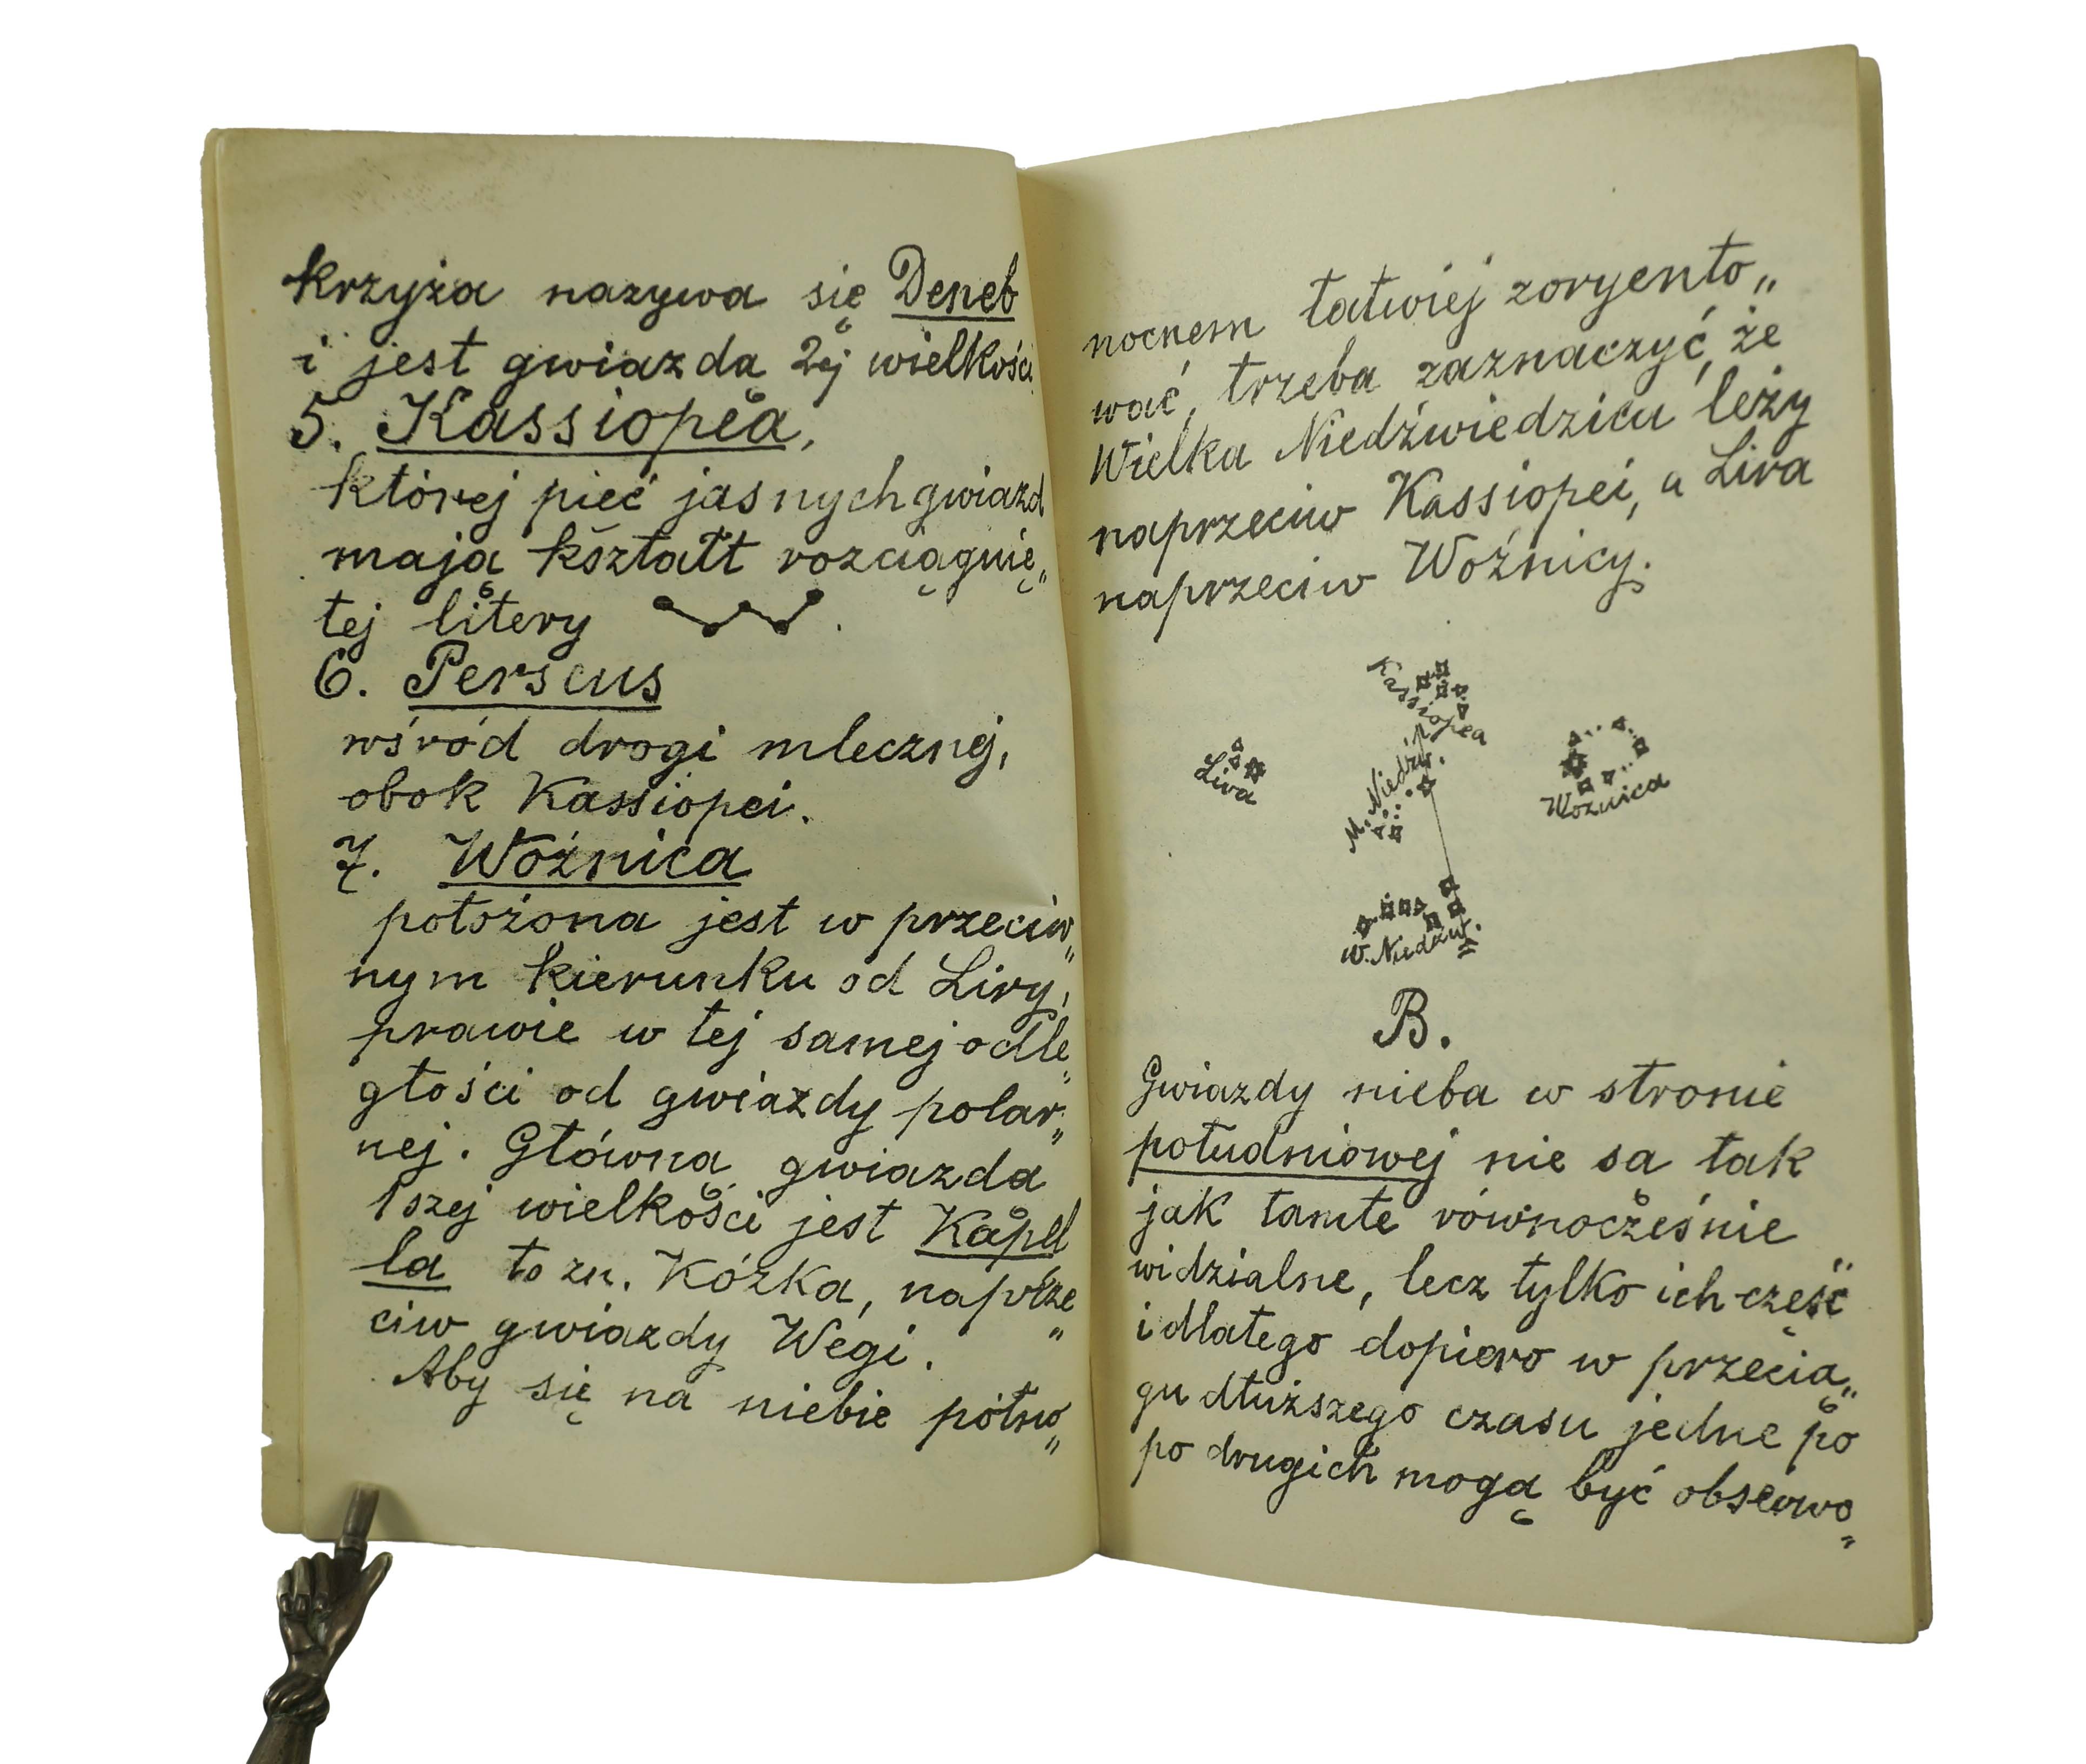 krzyża nazywa się Deneb
i jest gwiazdą 2ej wielkości
5. Kassiopea,
której pięć jasnych gwiazd
mają kształt rozciągnię„
tej litery
6. Perseus
wśród drogi mlecznej,
obok Kassiopei.
7. Woźnica
położona jest w przeciw„
nym kierunku od Liry,
prawie w tej samej odle„
głości od gwiazdy polar„
nej. Główną gwiazdą
1szej wielkości jest Kapel
la to zn. Kózka, naprze„
ciw gwiazdy Wegi.
Aby się na niebie półno„
nocnem łatwiej zoryento„
wać, trzeba zaznaczyć, że
Wielka Niedźwiedzica leży
naprzeciw Kassiopei, a Lira
naprzeciw Woźnicy.
Kassiopea
Lira
M. Niedźw.
Woźnica
W. Niedźw.
B.
Gwiazdy nieba w stronie
południowej nie są tak
jak tamte równocześnie
widzialne, lecz tylko ich część
i dlatego dopiero w przecią„
gu dłuższego czasu jedne po
po drugich mogą być obserwo„